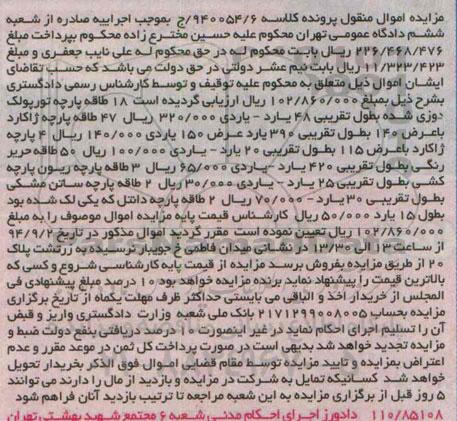 مزایده اموال منقول پرونده کلاسه ۹۴۰۰۵۴/۶/ج بموجب اجراییه صادره از شعبه
ششم دادگاه عمومی تهران محکوم علیه حسین مخترع زاده محکوم بپرداخت مبلغ
۲۲۶/۴۶۸/۴۷۶ ریال بابت محکوم به در حق محکوم له علی نایب جعفری و مبلغ
۱۱/۳۲۳/۴۲۳ ریال بابت نیم عشر دولتی در حق دولت می باشد که حسب تقاضای
ایشان اموال ذیل متعلق به محکوم علیه توقیف و توسط کارشناس رسمی دادگستری
بشرح ذیل بمبلغ ۱۰۲/۸۶۰/۰۰۰ ریال ارزیابی گردیده است ۱۸ طاقه پارچه تور پولک
دوزی شده بطول تقریبی ۴۸ یارد - یاردی ۳۲۰/۰۰۰ ریال ۴۷ طاقه پارچه ژاکارد
باعرض ۱۴۰ بطول تقریبی ۳۹۰ یارد عرض ۱۵۰ یاردی ۱۴۰/۰۰۰ ریال ۴ پارچه
ژاکارد باعرض ۱۱۵ بطول تقریبی ۲۰ یارد - یاردی ۱۰۰/۰۰۰ ریال ۵۰ طاقه حریر
رنگی بطول تقریبی ۴۲۰ یارد - یاردی ۶۵/۰۰۰ ریال ۳ طاقه پارچه ریون پارچه
کشی بطول تقریبی ۲۵ یارد - یاردی ۳۰/۰۰۰ ریال ۲ طاقه پارچه ساتن مشکی
بطول تقریبی ۳۰ یارد - ۷۰/۰۰۰ ریال ۲ طاقه پارچه دانتل که یکی لک شده بود
بطول ۱۵ یارد ۵۰/۰۰۰ ریال کارشناس قیمت پایه مزایده اموال موصوف را به مبلغ
۱۰۲/۸۶۰/۰۰۰ ریال تعیین نموده است مقرر گردید اموال مذکور در تاریخ ۹۴/۹/۲
از ساعت ۱۳ الی ۱۳/۳۰ در نشانی میدان فاطمی خ جویبار نرسیده به زرتشت پلاک
۲۰ از طریق مزایده بفروش برسد مزایده از قیمت پایه کارشناسی شروع و کسی که
بالاترین قیمت را پیشنهاد نماید برنده مزایده خواهد بود ۱۰ درصد مبلغ پیشنهادی فی
المجلس از خریدار اخذ و الباقی می بایستی حداکثر ظرف مهلت یکماه از تاریخ برگزاری
مزایده بحساب ۲۱۷۱۲۹۹۰۰۸۰۰۵ بانک ملی شعبه وزارت دادگستری واریز و قبض
آن را تسلیم اجرای احکام نماید در غیر اینصورت ۱۰ درصد دریافتی بنفع دولت ضبط و
مزایده تجدید خواهد شد بدیهی است در صورت پرداخت کل ثمن در موعد مقرر و عدم
اعتراض بمزایده و تایید مزایده توسط مقام قضایی اموال فوق الذکر بخریدار تحویل
خواهد شد کسانیکه تمایل به شرکت در مزایده و بازدید از مال را دارند می توانند
۵ روز قبل از برگزاری مزایده به این شعبه مراجعه تا ترتیب بازدید آنان فراهم شود
۱۱۰/۸۵۱۰۸ دادورز اجرای احکام مدنی شعبه ۶ مجتمع شهید بهشتی تهران